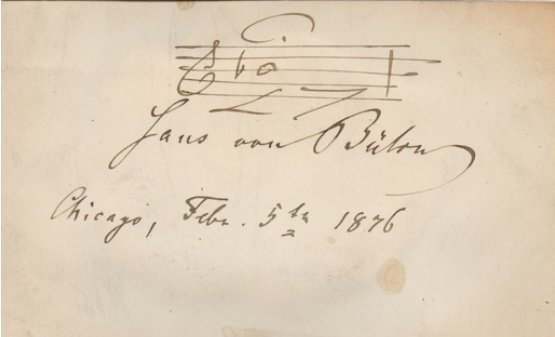 Hans von Bülow
Chicago, Febr. 5th 1876